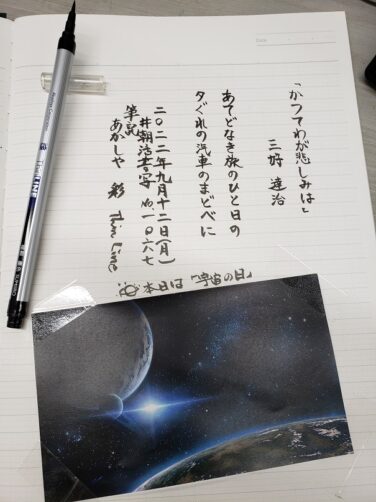 「かつてわが悲しみは」
三好 達治
あてどなき旅のひと日の
夕ぐれの汽車のまどべに
二〇二二年九月十二日(月)
井朝治書写 の一〇六六七
筆記
あかしや 彩 Thin Line
本日は「宇宙の日」
Date
LINE